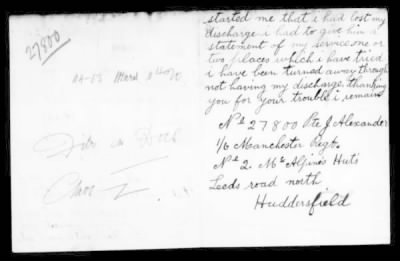 27800
started me that i had lost my
discharge i had to give him a
statement of my service one or
two places which i have tried
i have been turned away through
not having my discharge. thanking
you for your trouble i remain
No 27800 Pte J Alexander
1/6 Manchester Regt.
No 2. Mc Alpine's Huts
Leeds road north
Huddersfield